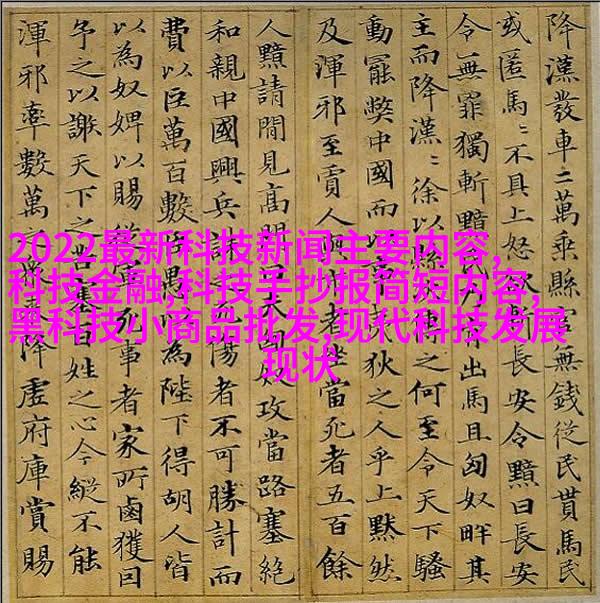 降漢發車二萬乘縣官無錢從民貰馬民
或匿馬〻不具上怒欲斬長安令黯曰長安
令無罪獨斬黯出馬且匈奴畔其
主而降漢〻徐以縣之何至令天下騷
動罷獘中國而以夷狄之人乎上默然
及渾邪至賈人者坐當死者五百餘
人黯請間見高門曰夫匈奴攻當路塞絕
和親中國興兵誅傷者不可勝計而
費以巨萬百數臣愚以為陛下得胡人皆
以為奴婢以賜從軍死事者家所鹵獲因
予之以謝天下之苦塞百姓之心今縱不能
渾邪率數萬降虛府庫賞賜
2022最新科技新闻主要内容,
科技金融,科技手抄报简短内容,
黑科技小商品批发,现代科技发展
现状